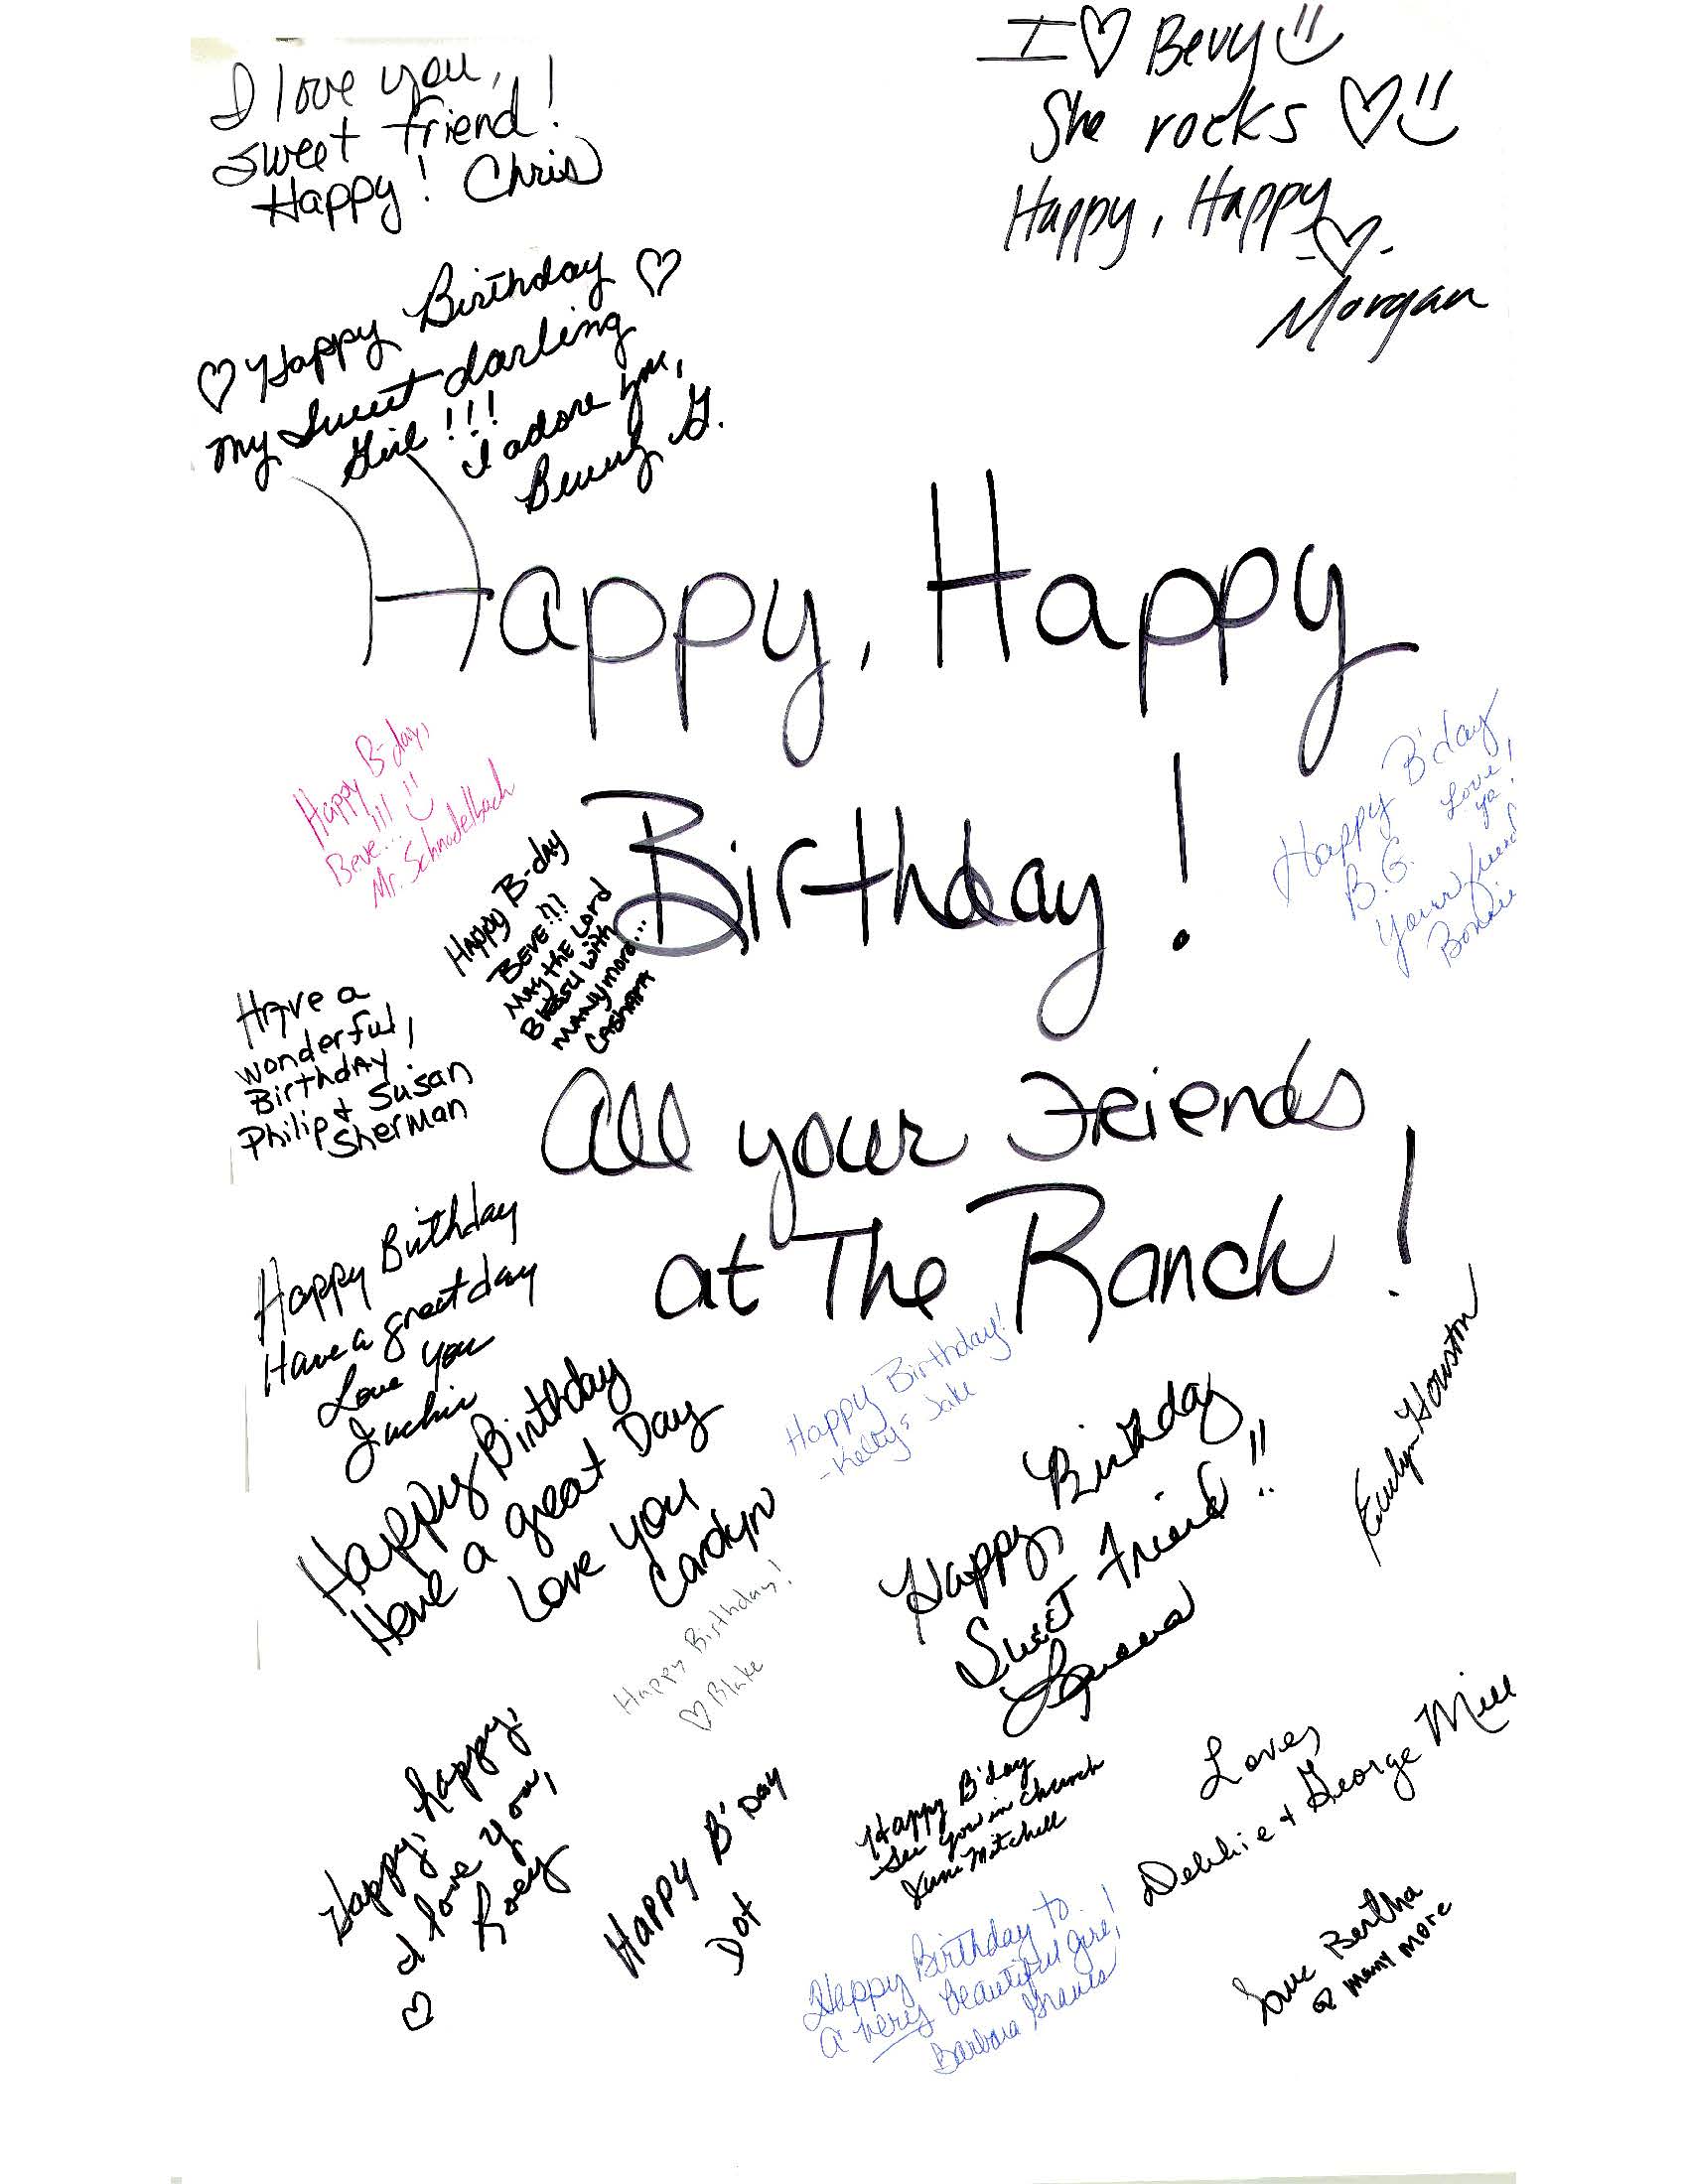 I love you,
sweet friend!
Happy! Chris
I ♡ Bevy
She rocks ♡
Happy, Happy
-♡-
Morgan
♡ Happy Birthday ♡
my sweet darling
Girl!!!
I adore you,
G.
Happy, Happy
Birthday!
All your Friends
at The Ranch!
Happy B-day,
Beve... !!!
Mr. Schnadelbach
Happy B-day
Beve!!!
May the Lord
Bless U with
many more...
Happy B'day
B.G. Love ya!
Your friend
Bonnie
Have a
wonderful
Birthday!
Philip & Susan
Sherman
Happy Birthday
Have a great day
Love you
Jackie
Happy Birthday
Have a great Day
Love you
Carolyn
Happy Birthday!
-Kelly & Jake
Happy Birthday
Sweet Friend!!
Evelyn Houston
Happy Birthday!
♡ Blake
Happy, happy,
I love you,
♡
Happy B'Day
Dot
Happy B'day
See you in church
June Mitchell
Love,
Debbie & George Mill
Happy Birthday to
a very beautiful girl!
Barbara Graves
Love Bertha
& many more